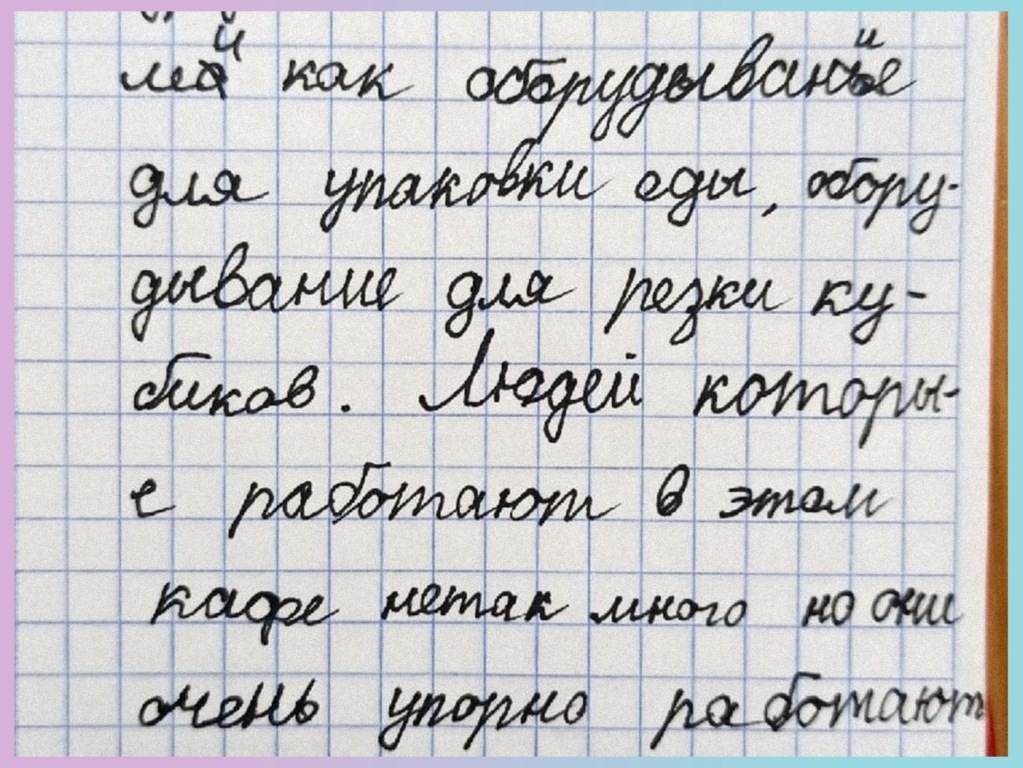 как оборудывание
для упаковки еды, обору-
дывание для резки ку-
биков. Людей которы-
е работают в этом
кафе нетак много но они
очень упорно работают